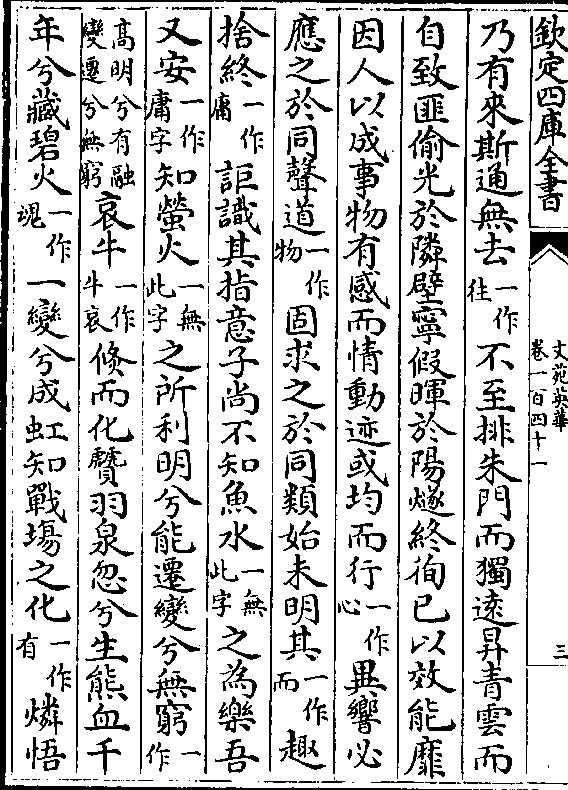 欽定四庫全書
文苑英華
卷一百四十一
三
乃有來斯通無去一作往不至排朱門而獨遠昇青雲而
自致匪偷光於隣壁寧假暉於陽燧終徇已以效能靡
因人以成事物有感而情動迹或均而行一作心異響必
應之於同聲道一作物固求之於同類始未明其一作而趣
捨終一作庸詎識其指意子尚不知魚水一無此字之為樂吾
又安一作庸字知螢火一無此字之所利明兮能遷變兮無窮一作
高明兮有融變遷兮無窮哀牛一作牛哀倏而化贙羽泉忽兮生熊血千
年兮藏碧火一作魂一變兮成虹知戰場之化一作有燐悟